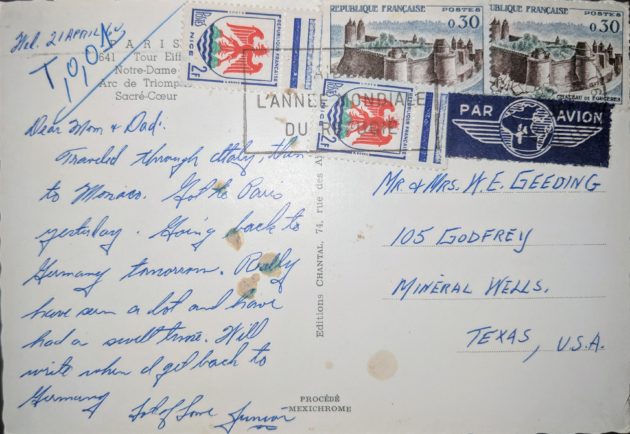 Wed. 21 APRIL
PARIS
641 Tour Eiff
Notre-Dame
Arc de Triomph
Sacré-Cœur
Dear Mom & Dad:
Traveled through Italy, then
to Monaco. Got to Paris
yesterday. Going back to
Germany tomorrow. Really
have seen a lot and have
had a swell time. Will
write when I get back to
Germany
Lot of Love Junior
Editions CHANTAL, 74, rue des Ar
PROCÉDÉ
MEXICHROME
NICE
2F
RÉPUBLIQUE FRANÇAISE
NICE
2F
RÉPUBLIQUE FRANÇAISE
RÉPUBLIQUE FRANÇAISE POSTES
0,30
PUBLIQUE FRANÇAISE POSTES
0,30
CHATEAU DE FOUGÈRES
L'ANNÉE MONDIALE
DU RÉFUGIÉ
PAR AVION
MR. & MRS. W. E. GEEDING
105 GODFREY
MINERAL WELLS,
TEXAS, U.S.A.